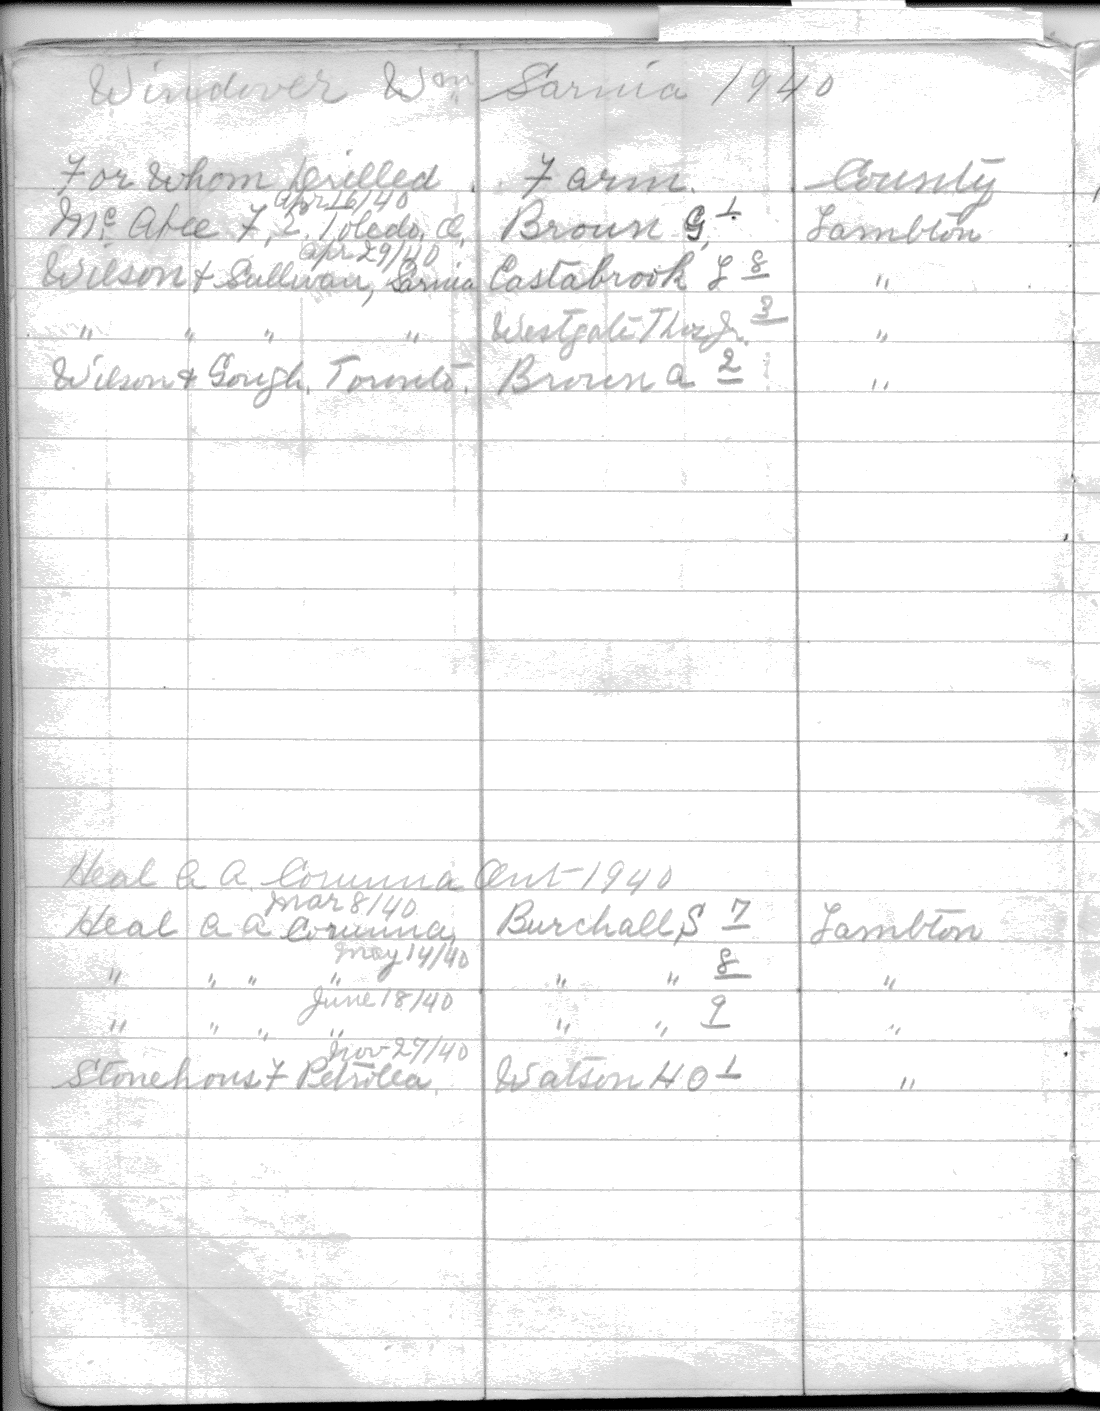 Windover Wm Sarnia 1940
For Whom Drilled Farm. County
Apr 16/40
McAbee F, L, Toledo, O, Brown G, 1 Lambton
Apr 29/40
Wilson & Sullivan, Sarnia Eastabrook L 8 "
" " " " Westgate Thos Jr. 3 "
Wilson & Gough, Toronto. Brown A 2 "
Heal A A Corunna Ont 1940
Mar 8/40
Heal A A Corunna, Burchall S 7 Lambton
May 14/40
" " " " " " 8 "
June 18/40
" " " " " " 9 "
Nov 27/40
Stonehous F Petrolea, Watson H O 1 "